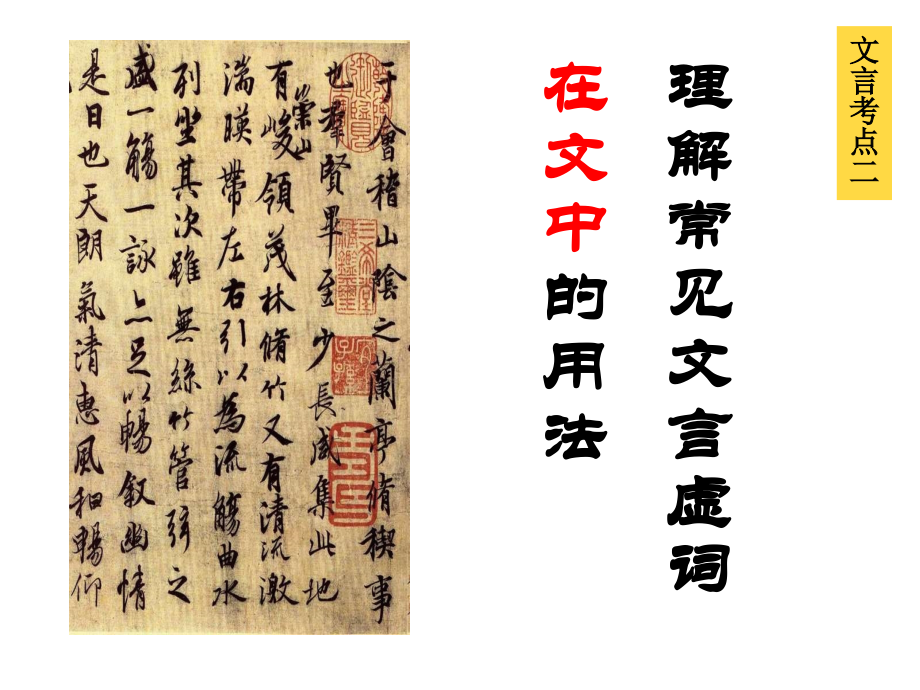 文言考点二
理解常见文言虚词
在文中的用法
于會稽山陰之蘭亭脩稧事
也羣賢畢至少長咸集此地
有崇山峻領茂林脩竹又有清流激
湍暎帶左右引以為流觴曲水
列坐其次雖無絲竹管弦之
盛一觴一詠亦足以暢敘幽情
是日也天朗氣清惠風和暢仰